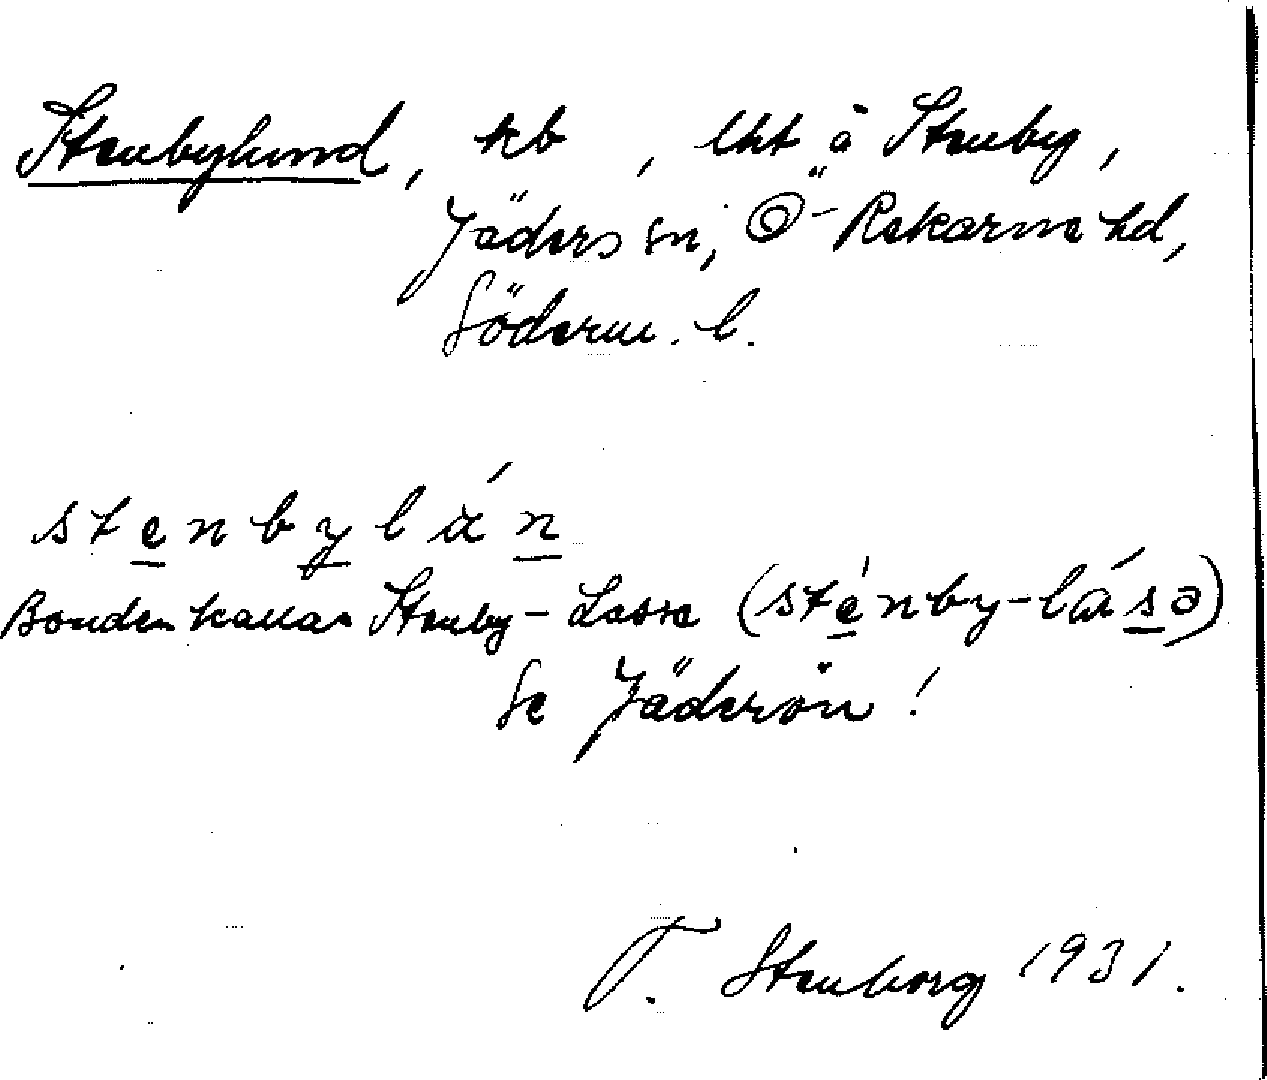 Stenbylund, tkb, lht å Stenby,
Jäders sn, Ö-Rekarne hd,
Söderm. l.
stenbylán
Bonden kallas Stenby-Lasse (sténby-lásə)
Se Jäderön!
T. Stenborg 1931.